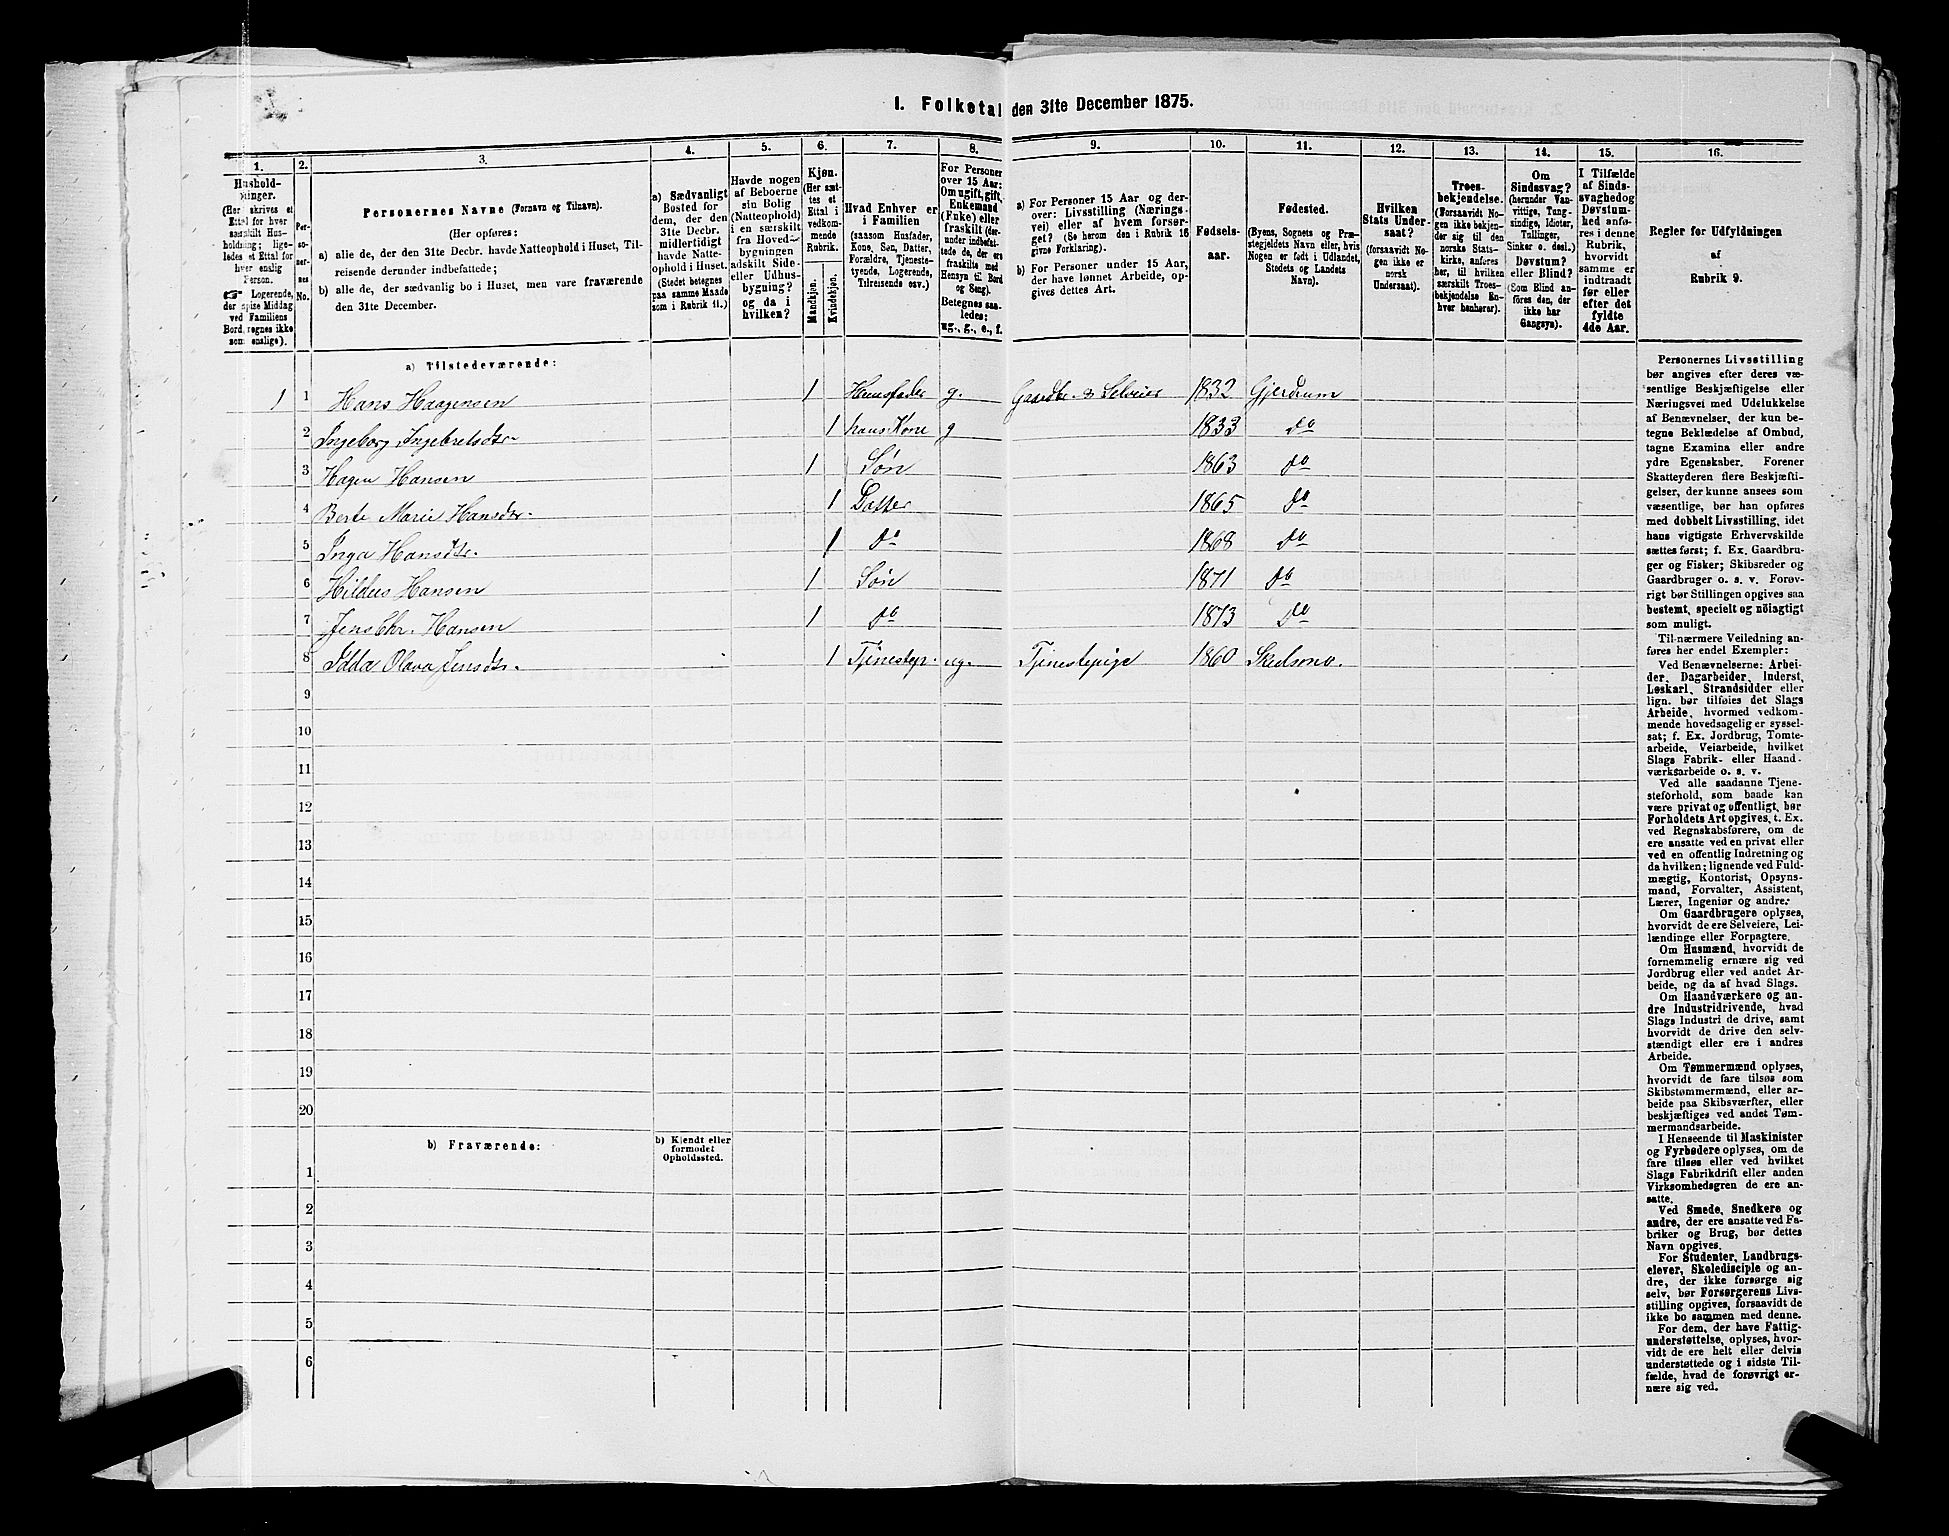 1. Folketal den 31te December 1875.
1. 2. 3. 4. 5. 6. 7. 8. 9. 10. 11. 12. 13. 14. 15. 16.
Hushold-
ninger.
(Her skrives et
Ettal for hver
særskilt Hus-
holdning; lige-
ledes et Ettal for
hver enslig
Person.
☞ Logerende,
der spise Middag
ved Familiens
Bord, regnes ikke
som enslige).
Per-
so-
ner-
nes
No.
Personernes Navne (Fornavn og Tilnavn).
(Her opføres:
a) alle de, der den 31te Decbr. havde Natteophold i Huset, Til-
reisende derunder indbefattede;
b) alle de, der sædvanlig bo i Huset, men vare fraværende
den 31te December.
a) Sædvanligt
Bosted for
dem, der den
31te Decbr.
midlertidigt
havde Natte-
ophold i Huset.
(Stedet betegnes
paa samme Maade
som i Rubrik 11.)
Havde nogen
af Beboerne
sin Bolig
(Natteophold)
i en særskilt
fra Hoved-
bygningen
adskilt Side-
eller Udhus-
bygning?
og da i
hvilken?
Kjøn.
(Her sæt-
tes et
Ettal i
vedkom-
mende
Rubrik.
Mandkjøn.
Kvindekjøn.
Hvad Enhver er
i Familien
(saasom Husfader,
Kone, Søn, Datter,
Forældre, Tjeneste-
tyende, Logerende,
Tilreisende osv.)
For Personer
over 15 Aar:
Om ugift, gift,
Enkemand
(Enke) eller
fraskilt (der-
under indbefat-
tede de, der ere
fraskilte med
Hensyn til Bord
og Seng).
Betegnes saa-
ledes:
ug., g., e., f.
a) For Personer 15 Aar og der-
over: Livsstilling (Nærings-
vei) eller af hvem forsør-
get? (Se herom den i Rubrik 16
givne Forklaring).
b) For Personer under 15 Aar,
der have lønnet Arbeide, op-
gives dettes Art.
Fødsels-
aar.
Fødested.
(Byens, Sognets og Præ-
stegjeldets Navn eller, hvis
Nogen er født i Udlandet,
Stedets og Landets
Navn).
Hvilken
Stats Under-
saat?
(forsaavidt No-
gen ikke er
norsk
Undersaat).
Troes-
bekjendelse.
(Forsaavidt No-
gen ikke bekjen-
der sig til den
norske Stats-
kirke, anføres
her, til hvilken
særskilt Troes-
bekjendelse En-
hver henhører).
Om
Sindssvag?
(herunder Van-
vittige, Tung-
sindige, Idioter,
Tullinger,
Sinker o. desl.)
Døvstum?
eller Blind?
(Som Blind an-
føres den, der
ikke har
Gangsyn).
I Tilfælde
af Sinds-
svaghed og
Døvstum-
hed anfø-
res i denne
Rubrik,
hvorvidt
samme er
indtraadt
før eller
efter det
fyldte
4de Aar.
Regler for Udfyldningen
af
Rubrik 9.
a) Tilstedeværende:
1 1 Hans Haagensen 1 Huusfader g. Gaardbr. & Selveier 1832 Gjerdrum
2 Ingeborg Ingebretsdtr 1 hans Kone g 1833 do
3 Hagen Hansen 1 Søn 1863 do
4 Berte Marie Hansdtr. 1 Datter 1865 do
5 Inga Hansdtr. 1 do 1868 do
6 Hildus Hansen 1 Søn 1871 do
7 Jens Chr. Hansen 1 do 1873 do
8 Idda Olava Jensdtr. 1 Tjenestep. ug. Tjenestepige 1860 Skedsmo.
9
10
11
12
13
14
15
16
17
18
19
20
b) Fraværende:
b) Kjendt eller
formodet
Opholdssted.
1
2
3
4
5
6
Personernes Livsstilling
bør angives efter deres væ-
sentlige Beskjæftigelse eller
Næringsvei med Udelukkelse
af Benævnelser, der kun be-
tegne Beklædelse af Ombud,
tagne Examina eller andre
ydre Egenskaber. Forener
Skatteyderen flere Beskjæfti-
gelser, der kunne ansees som
væsentlige, bør han opføres
med dobbelt Livsstilling, idet
hans vigtigste Erhvervskilde
sættes først; f. Ex. Gaardbru-
ger og Fisker; Skibsreder og
Gaardbruger o. s. v. Forøv-
rigt bør Stillingen opgives saa
bestemt, specielt og nöiagtigt
som muligt.
Til nærmere Veiledning an-
føres her endel Exempler:
Ved Benævnelserne: Arbei-
der, Dagarbeider, Inderst,
Løskarl, Strandsidder eller
lign. bør tilføies det Slags
Arbeide, hvormed vedkom-
mende hovedsagelig er syssel-
sat; f. Ex. Jordbrug, Tomte-
arbeide, Veiarbeide, hvilket
Slags Fabrik- eller Haand-
værksarbeide o. s. v.
Ved alle saadanne Tjene-
steforhold, som baade kan
være privat og offentligt, bør
Forholdets Art opgives, t. Ex.
ved Regnskabsførere, om de
ere ansatte ved en privat eller
ved en offentlig Indretning og
da hvilken; lignende ved Fuld-
mægtig, Kontorist, Opsyns-
mand, Forvalter, Assistent,
Lærer, Ingeniør og andre.
Om Gaardbrugere oplyses,
hvorvidt de ere Selveiere, Lei-
lændinge eller Forpagtere.
Om Husmænd, hvorvidt de
fornemmelig ernære sig ved
Jordbrug eller ved andet Ar-
beide, og da af hvad Slags.
Om Haandværkere og an-
dre Industridrivende, hvad
Slags Industri de drive, samt
hvorvidt de drive den selv-
stændigt eller ere i andres
Arbeide.
Om Tømmermænd oplyses,
hvorvidt de fare tilsøs som
Skibstømmermænd, eller ar-
beide paa Skibsværfter, eller
beskjæftiges ved andet Tøm-
mermandsarbeide.
I Henseende til Maskinister
og Fyrbødere oplyses, om de
fare tilsøs eller ved hvilket
Slags Fabrikdrift eller anden
Virksomhedsgren de ere an-
satte.
Ved Smede, Snedkere og
andre, der ere ansatte ved Fa-
briker og Brug, bør dettes
Navn opgives.
For Studenter, Landbrugs-
elever, Skoledisciple og an-
dre, der ikke forsørge sig
selv, bør Forsørgerens Livs-
stilling opgives, forsaavidt de
ikke bo sammen med denne.
For dem, der have Fattig-
understøttelse, oplyses, hvor-
vidt de ere helt eller delvis
understøttede og i sidste Til-
fælde, hvad de forøvrigt er-
nære sig ved.